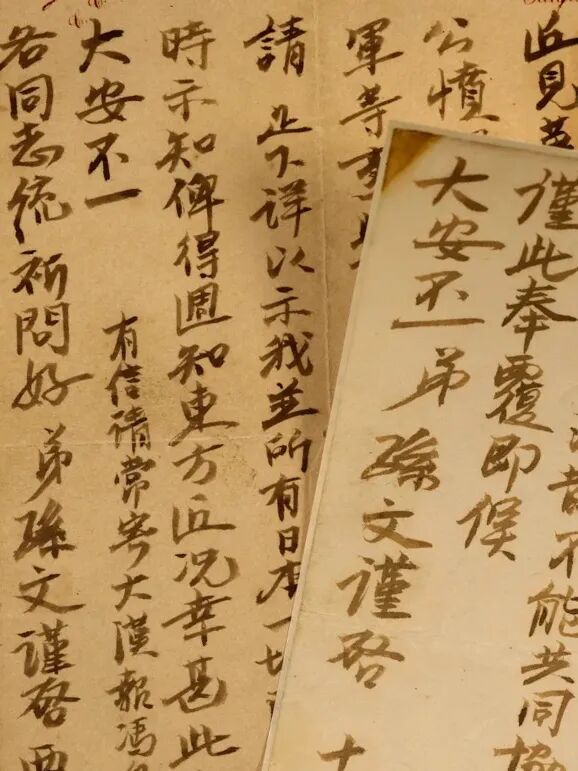 近見
公憤
軍等事
請 足下詳以示我並所有日本一切
時示知俾得週知東方近况幸甚此
大安不一
有信請常寄大漢報馮
各同志統祈問好 弟孫文謹啓 西
不能共同協
謹此奉覆即候
大安不一 弟孫文謹啓 十